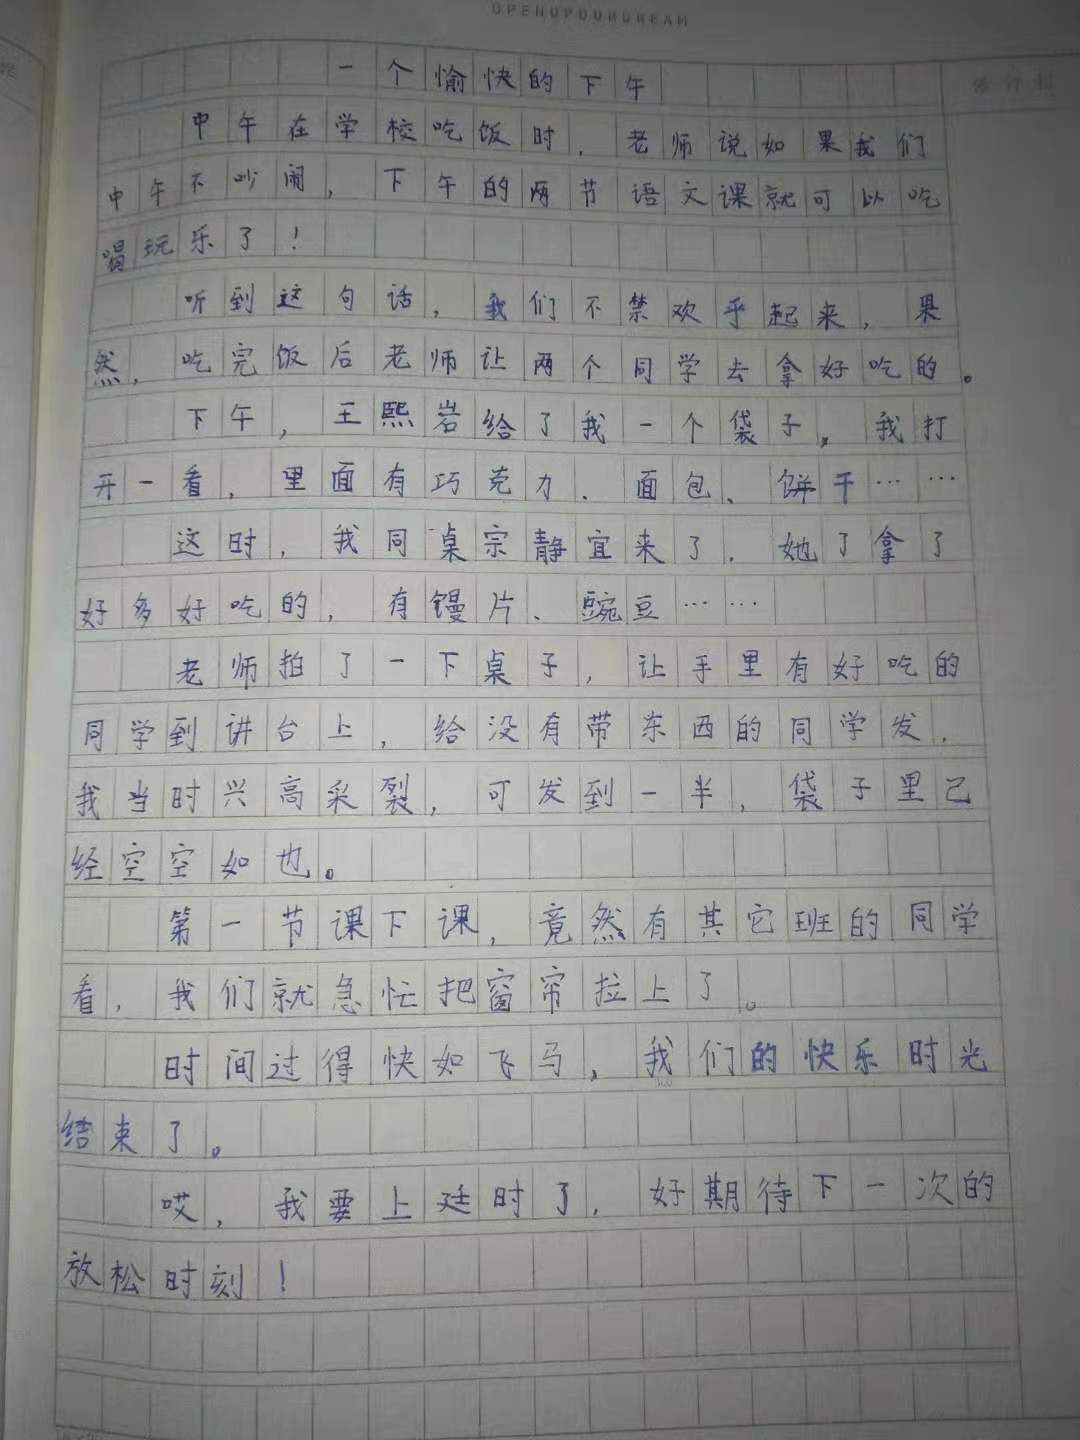 OPENUPOURDREAM
一个愉快的下午
中午在学校吃饭时，老师说如果我们
中午不吵闹，下午的两节语文课就可以吃
喝玩乐了！
听到这句话，我们不禁欢乎起来，果
然，吃完饭后老师让两个同学去拿好吃的。
下午，王熙岩给了我一个袋子，我打
开一看，里面有巧克力、面包、饼干……
这时，我同桌宗静宜来了，她了拿了
好多好吃的，有馒片、豌豆……
老师拍了一下桌子，让手里有好吃的
同学到讲台上，给没有带东西的同学发，
我当时兴高采裂，可发到一半，袋子里已
经空空如也。
第一节课下课，竟然有其它班的同学
看，我们就急忙把窗帘拉上了。
时间过得快如飞马，我们的快乐时光
结束了。
哎，我要上延时了，好期待下一次的
放松时刻！